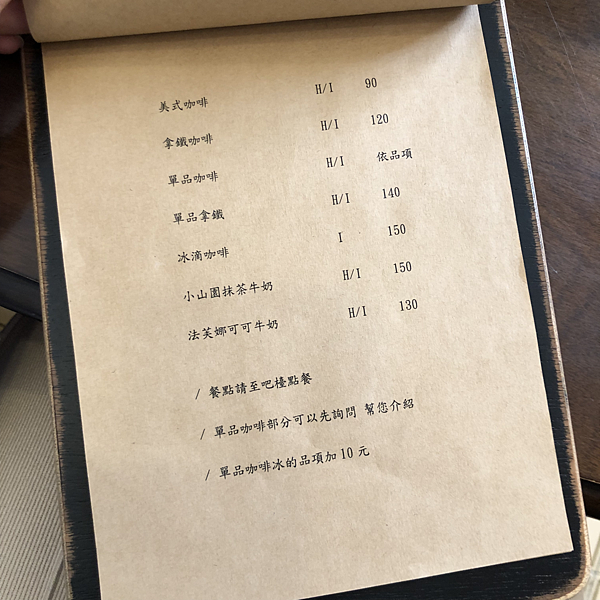 美式咖啡 H/I 90
拿鐵咖啡 H/I 120
單品咖啡 H/I 依品項
單品拿鐵 H/I 140
冰滴咖啡 I 150
小山園抹茶牛奶 H/I 150
法芙娜可可牛奶 H/I 130
/ 餐點請至吧檯點餐
/ 單品咖啡部分可以先詢問 幫您介紹
/ 單品咖啡冰的品項加 10 元